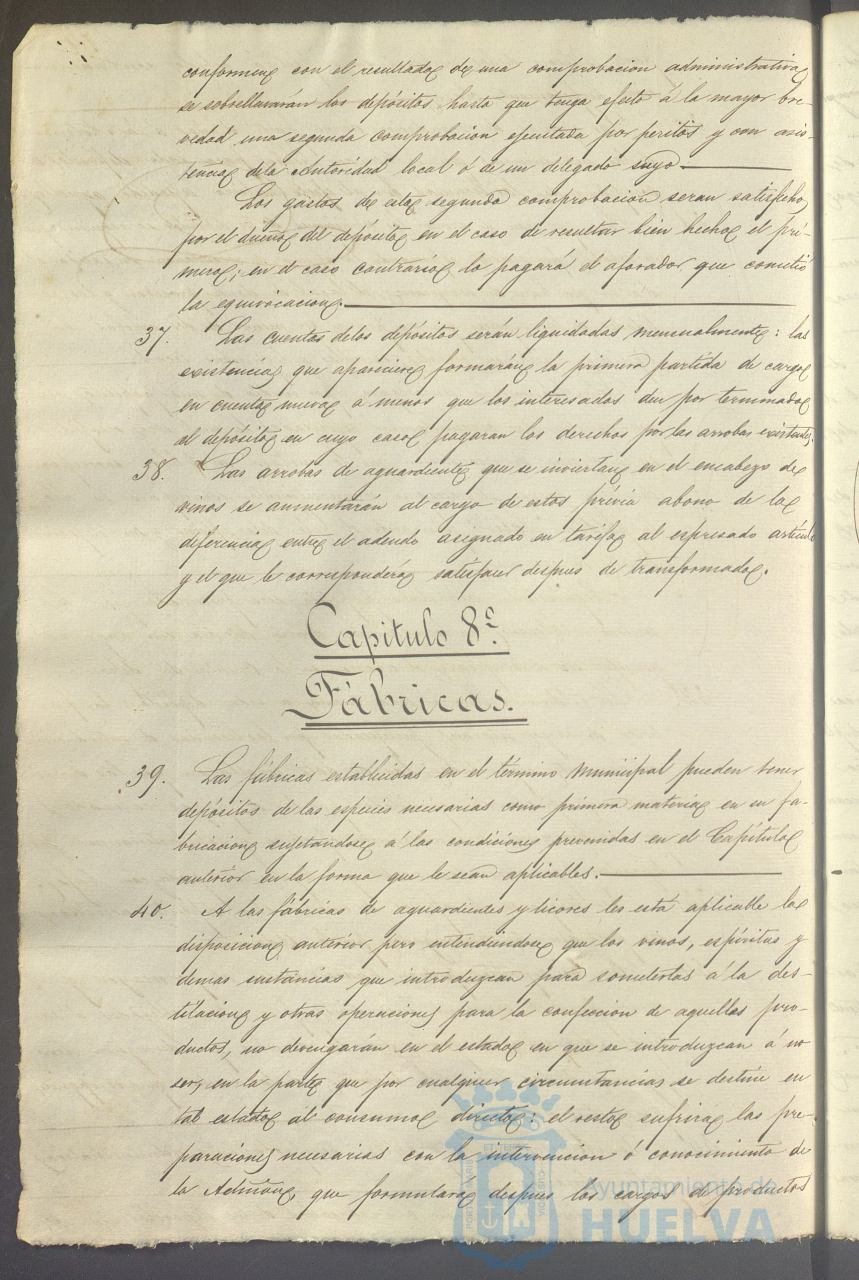 conforme con el resultado de una comprobacion administrativa
se sobrellavarán los depósitos hasta que tenga efecto á la mayor bre-
vedad una segunda comprobacion ejecutada por peritos y con asis-
tencia dela Autoridad local ó de un delegado suyo.
Los gastos de esta segunda comprobación seran satisfechos
por el dueño del depósito en el caso de resultar bien hecha el pri-
mero; en el caso contrario lo pagará el aforador que cometió
la equivocacion.
37. Las cuentas delos depósitos serán liquidadas mensualmente: las
existencias que aparecieren formarán la primera partida de cargo
en cuenta nueva á menos que los interesados den por terminado
el depósito en cuyo caso pagaran los derechos por las arrobas existentes.
38. Las arrobas de aguardiente que se inviertan en el encabezo de
vinos se aumentarán al cargo de estos prévia abono de la
diferencia entre el adeudo asignado en tarifa al espresado artículo
y el que le corresponderá satisfacer despues de transformado.
Capitulo 8º
Fábricas.
39. Las fábricas establecidas en el término municipal pueden tener
depósitos de las especies necesarias como primera materia en su fa-
bricacion sujetandose á las condiciones prevenidas en el Capítulo
anterior en la forma que le sean aplicables.
40. A las fábricas de aguardientes y licores les está aplicable la
disposicion anterior pero entendiendose que los vinos, espíritus y
demas sustancias que introduzcan para someterlas á la des-
tilacion y otras operaciones para la confeccion de aquellos pro-
ductos, no devengarán en el estado en que se introduzcan á no
ser, en la parte que por cualquier circunstancias se destine en
tal estado al consumo directo: el resto sufrirá las pre-
paraciones necesarias con la intervencion ó conocimiento de
la Admñon, que formulará despues los cargos de productos
Ayuntamiento de
HUELVA